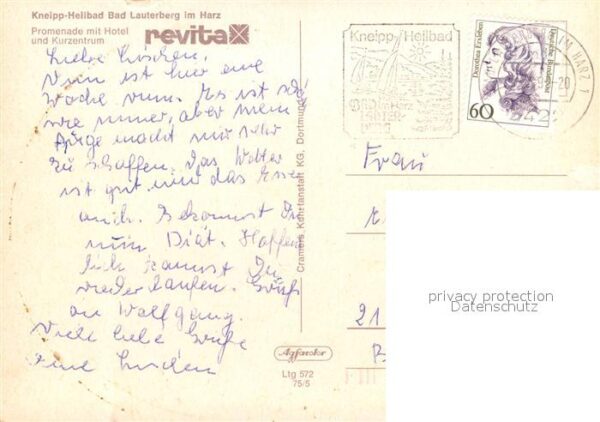 Kneipp-Heilbad Bad Lauterberg im Harz
Promenade mit Hotel
und Kurzentrum
revita
nun ist hier eine
Woche rum. Es ist
wie immer, aber mein
Auge macht mir sehr
zu schaffen. Das Wetter
ist gut und das Essen
auch. Bekommst Du
nun Diät. Hoffent
lich kannst Du
wieder laufen. Gruß
an Wolfgang.
Viele liebe Grüße
Cramers Kunstanstalt KG, Dortmund
Agfacolor
Ltg 572
75/5
Kneipp-Heilbad
BAD im Harz
LAUTER-
BERG
Dorothea Erxleben
Deutsche Bundespost
60
IM HARZ 1
Frau
21
privacy protection
Datenschutz